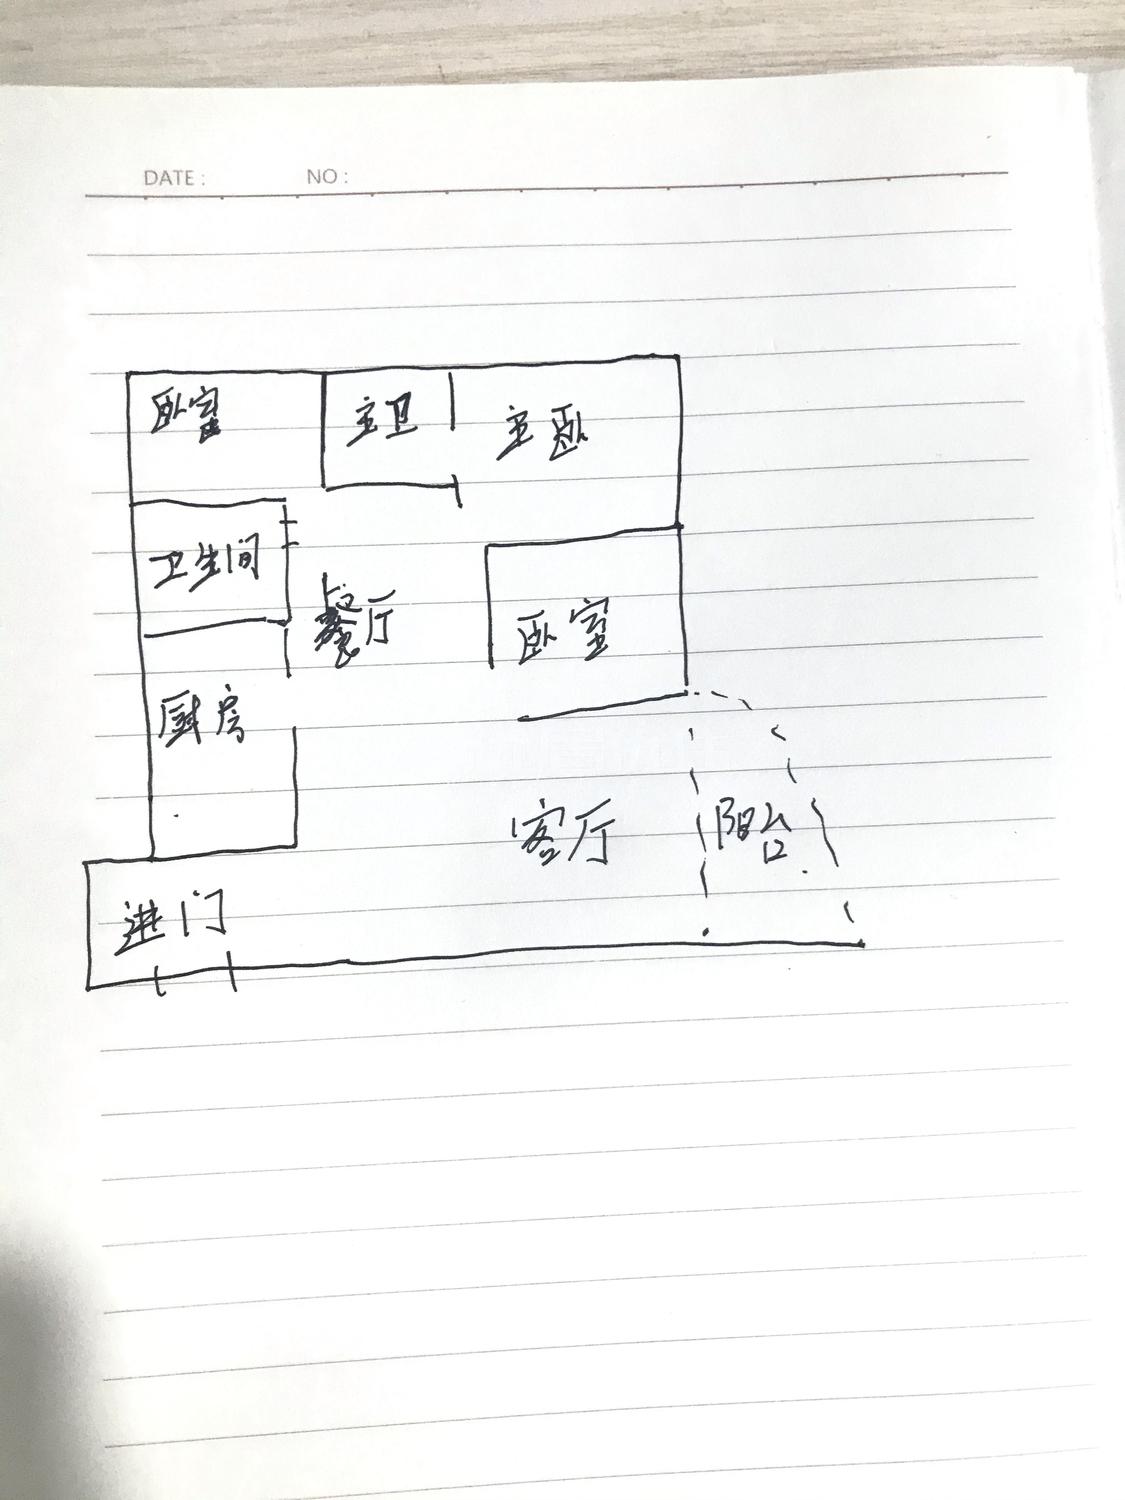 DATE: NO:
卧室 主卫 主卧
卫生间
餐厅 卧室
厨房
客厅 阳台
进门